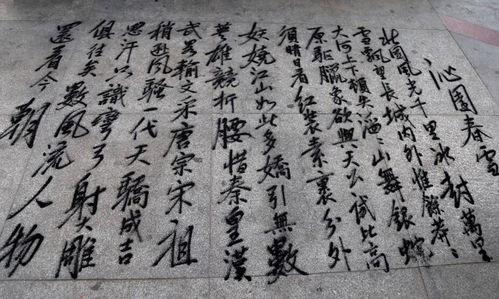 沁園春雪
北國風光千里冰封萬里
雪飄望長城內外惟餘莽々
大河上下頓失滔々山舞銀蛇
原驅臘象欲與天公試比高
須晴日看紅裝素裹分外
妖嬈江山如此多嬌引無數
英雄競折腰惜秦皇漢
武畧輸文采唐宗宋祖
稍遜風騷代天驕成吉
思汗只識彎弓射大雕
俱往矣數風流人物
還看今朝